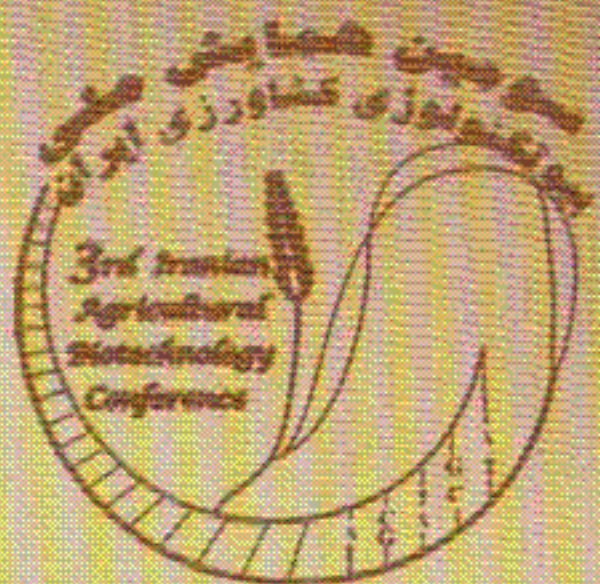 سومین همایش ملی
بیوتکنولوژی کشاورزی ایران
3rd Iranian
Agricultural
Biotechnology
Conference